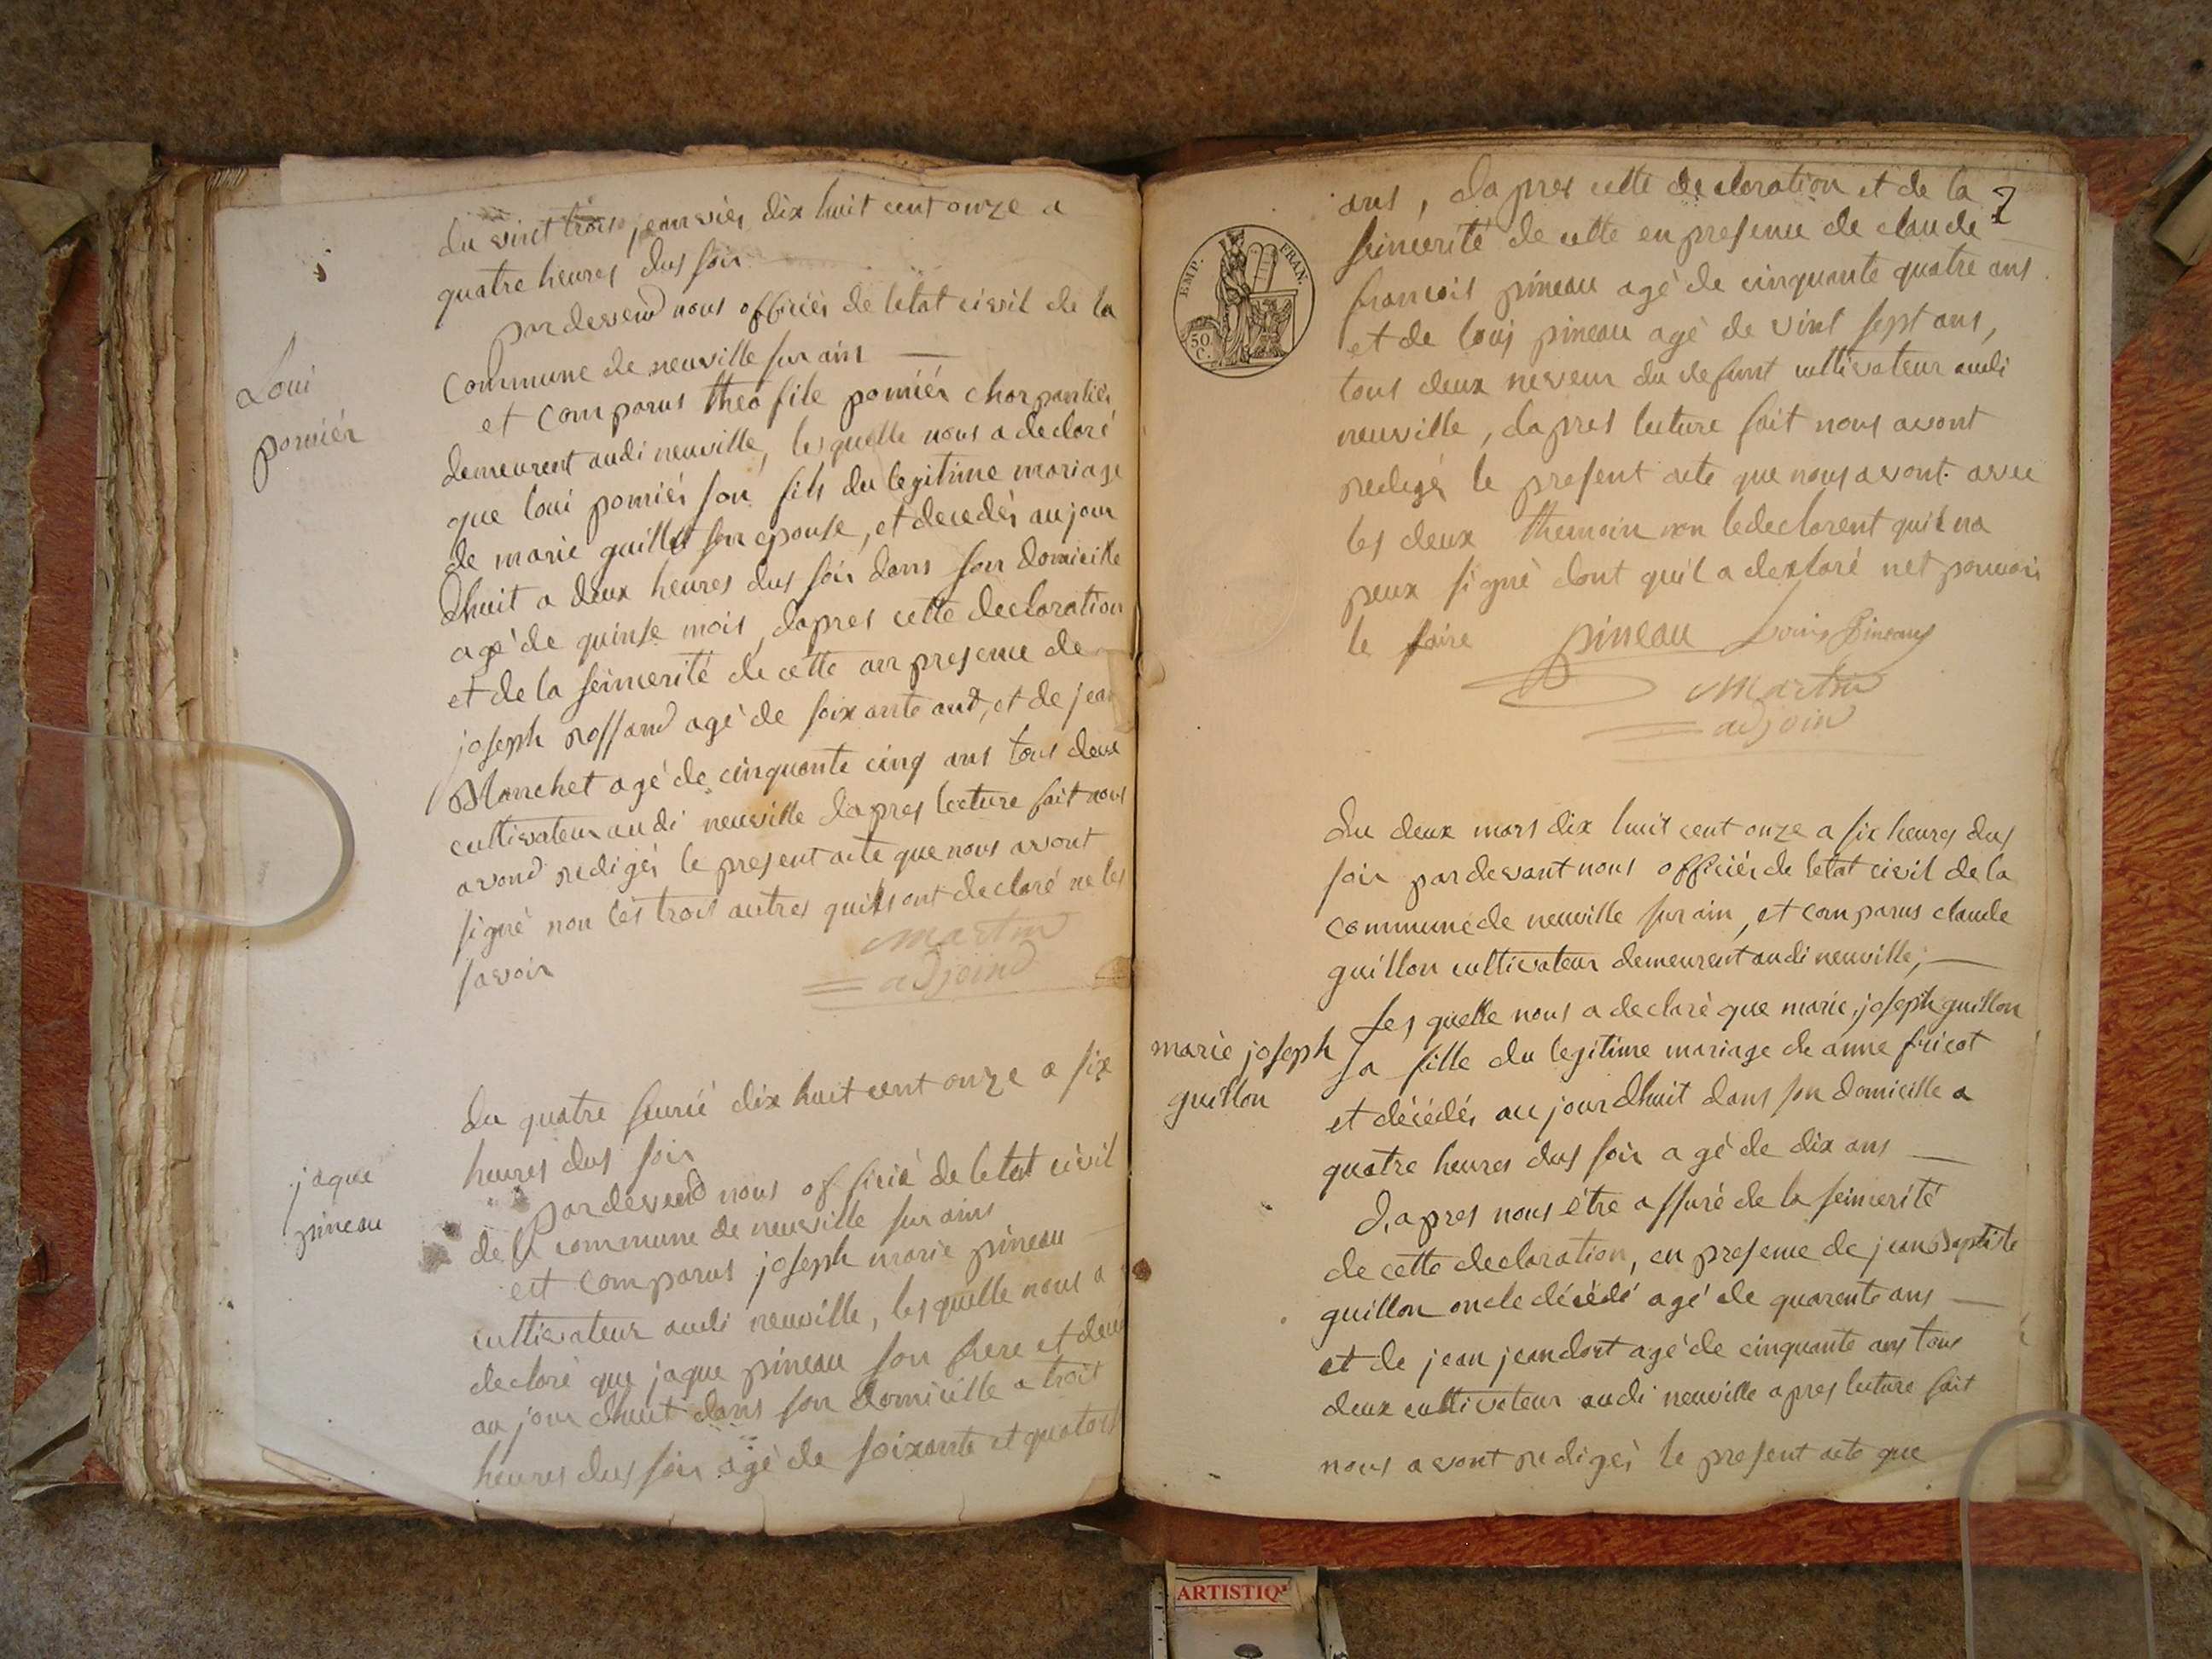 du vint trois jeanvier dix huit cent onze a
quatre heures dus soir
par devend nous officier de letat civil de la
Commune de neuville sur ain
Loui
pomiér
et comparus theofile pomiér charpantier
demeurent audi neuville, les quelle nous a declaré
que loui pomiér son fils du legitime mariage
de marie guillet son epouse, et decedér au jour
dhuit a deux heures dus soir dans son domicille
agé de quinse mois, dapres cette declaration
et de la seincerité de cette an presence de
joseph rossand agé de soixante and, et de jean
Blanchet agé de cinquante cinq ans tous deux
cultivateur audi neuville dapres lecture fait nous
avond redigér le present acte que nous avont
signé non les trois autres quils ont declaré ne les
savoir
martin
adjoind
du quatre feurié dix huit cent onze a six
heures dus soir
jaque
pineau
par devend nous officié de letat civil
de la commune de neuville sur ains
est comparus joseph marie pineau
cultivateur audi neuville, les quelle nous a
declaré que jaque pineau son frere et décé
au jour dhuit dans son domicille a troit
heures dus soir agé de soixante et quators
2
ans, dapres cette declaration et de la
seincerité de cette en presence de claude
EMP. FRAN.
50 C.
francois pineau agé de cinquante quatre ans
et de louis pineau agé de vint sept ans,
tous deux neveur du defunt cultivateur audi
neuville, dapres lecture fait nous avont
redigér le present acte que nous avont avec
les deux themoin non le declarent quil na
peux signé dont quil a declaré net pouvoir
le faire pineau Louis Pineau
Martin
adjoin
du deux mars dix huit cent onze a six heures dus
soir par devant nous officiér de letat civil de la
commune de neuville sur ain, et comparus claude
guillon cultivateur demeurent audi neuville;
Les quelle nous a declaré que marie joseph guillon
marie joseph
guillon
sa fille du legitime mariage de anne fricot
et décédér au jour dhuit dans son domicille a
quatre heures dus soir agé de dix ans
D,apres nous étre assuré de la seincerité
de cette declaration, en presence de jean Baptiste
guillon oncle décédé agé de quarente ans
et de jean jeandort agé de cinquante ans tous
deux cultivateur audi neuville apres lecture fait
nous avont redigér le present acte que
ARTISTIQ